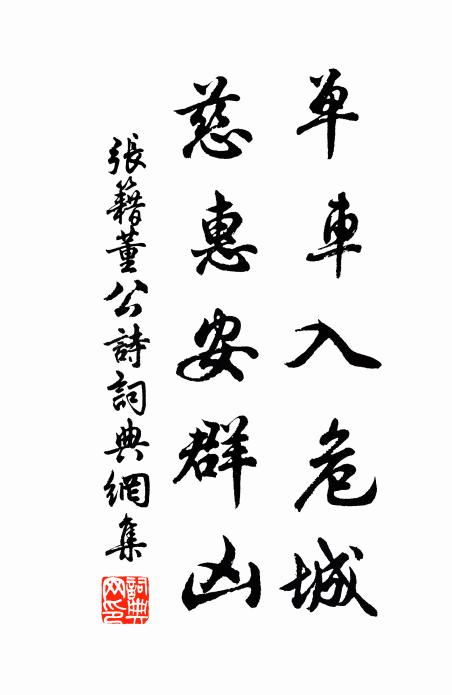 单車入危城
慈惠安群凶
張籍董公詩詞典網集
詞典網印